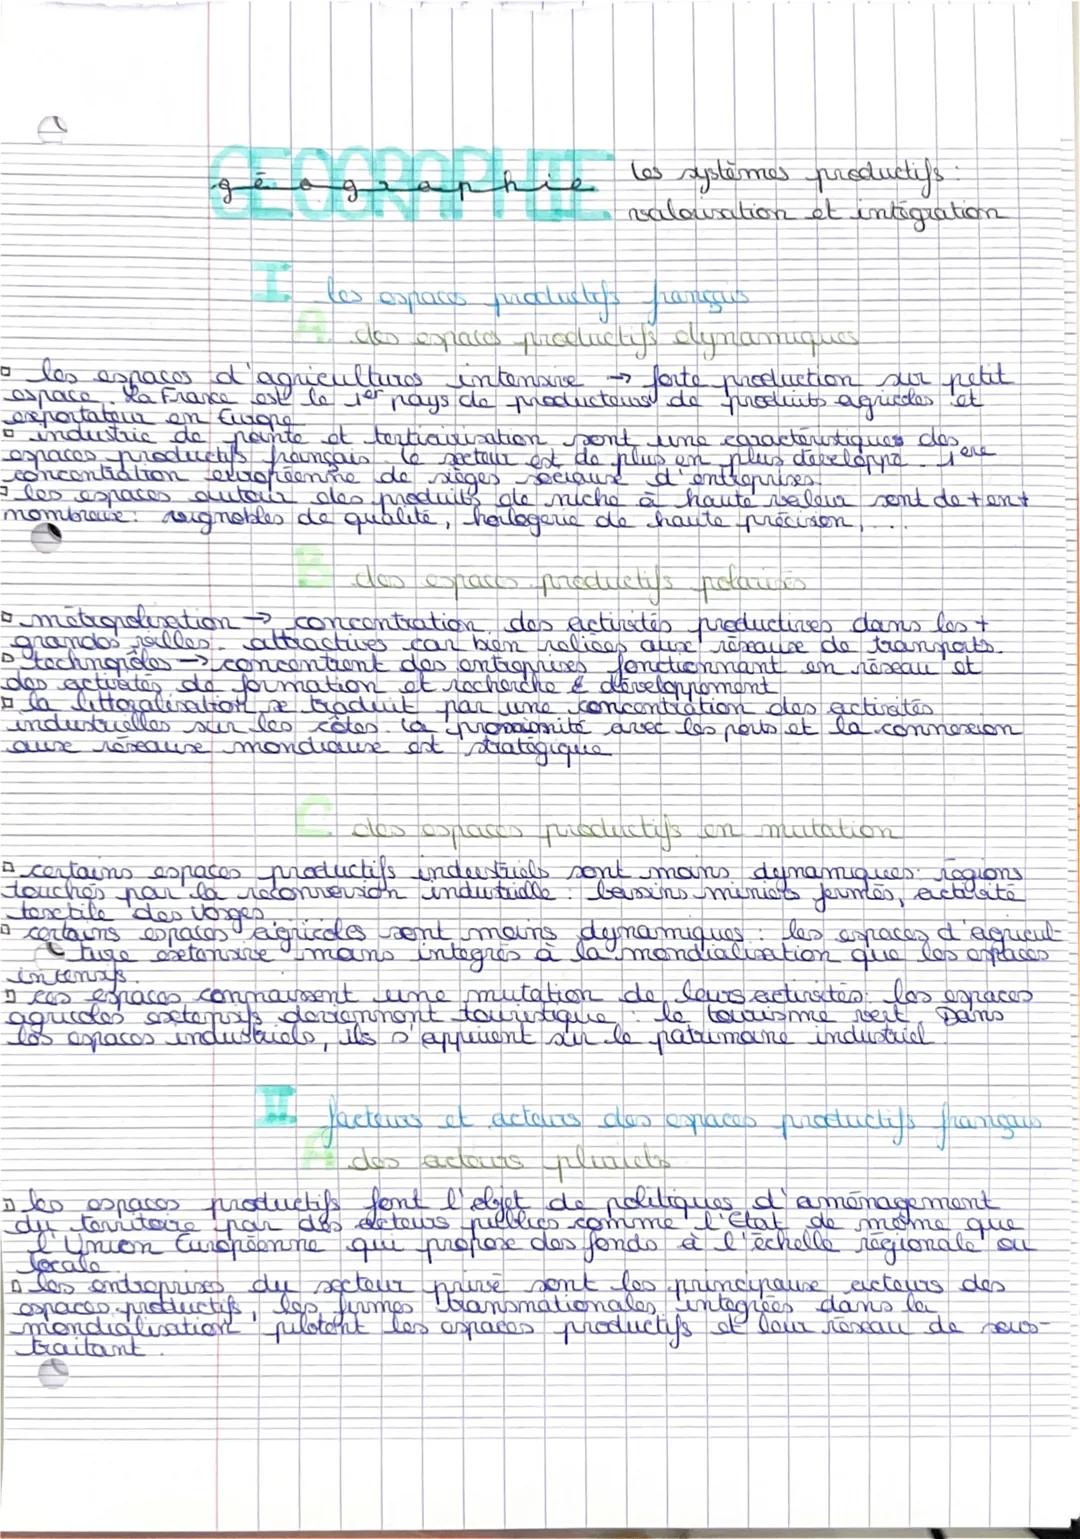 GEOGRAPHIE
géographie
les systèmes productifs :
valorisation et intégration
I les espaces productifs français
A. des espaces productifs dynamiques
les espaces d'agricultures intensive → forte production sur petit
espace. La France est le 1er pays de producteurs de produits agricoles et
exportateur en Europe
industrie de pointe et tertiairisation sont une caractéristiques des
espaces productifs français. le secteur est de plus en plus développé. 1ère
concentration européenne de sièges sociaux d'entreprises
les espaces autour des produits de niche à haute valeur sont de + en +
nombreux : vignobles de qualité, horlogerie de haute précision, ...
B des espaces productifs polarisés
métropolisation → concentration des activités productives dans les +
grandes villes. attractives car bien reliées aux réseaux de transports.
technopôles → concentrent des entreprises fonctionnant en réseau et
des activités de formation et recherche & développement
la littoralisation se traduit par une concentration des activités
industrielles sur les côtes. la proximité avec les ports et la connexion
aux réseaux mondiaux est stratégique
C des espaces productifs en mutation
certains espaces productifs industriels sont moins dynamiques : régions
touchés par la reconversion industrielle : bassins miniers fermés, activité
textile des Vosges
certains espaces agricoles sont moins dynamiques : les espaces d'agricul-
ture extensive moins intégrés à la mondialisation que les espaces
intensifs.
ces espaces connaissent une mutation de leurs activités : les espaces
agricoles extensifs deviennent touristique : le tourisme vert. Dans
les espaces industriels, ils s'appuient sur le patrimoine industriel
II facteurs et acteurs des espaces productifs français
A des acteurs pluriels
les espaces productifs font l'objet de politiques d'aménagement
du territoire par des acteurs publics comme l'Etat de même que
l'Union Européenne qui propose des fonds à l'échelle régionale ou
locale
les entreprises du secteur privé sont les principaux acteurs des
espaces productifs, les firmes transnationales intégrées dans la
mondialisation pilotent les espaces productifs et leur réseau de sous-
traitant.